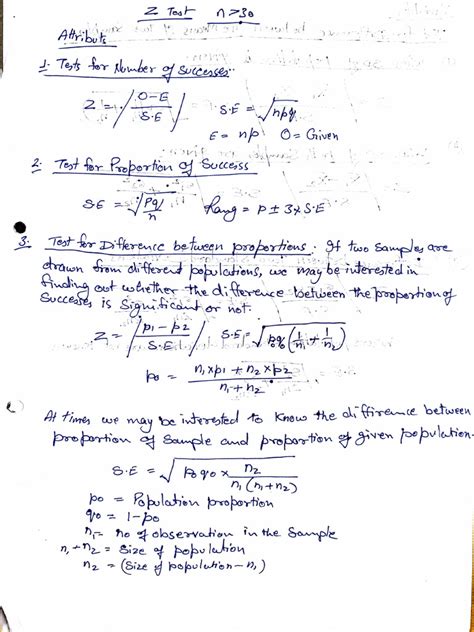 Z Test n>30
Attributs
1. Tests for Number of Successes
Z = |O-E / S.E| S.E = √npq
E = np O = Given
2. Test for Proportion of Success
S.E = √pq/n Rang = P ± 3 x S.E
3. Test for Difference between proportions. If two samples are
drawn from different populations, we may be interested in
finding out whether the difference between the proportion of
Successes is Significant or not.
Z = |p1 - p2 / S.E| S.E = √p0q0(1/n1 + 1/n2)
p0 = n1 x p1 + n2 x p2 / n1 + n2
At times we may be interested to know the diffirence between
proportion of Sample and proportion of given population.
S.E = √p0 q0 x n2 / n1 (n1 + n2)
p0 = Population proportion
q0 = 1-p0
n1 = no of observation in the Sample
n1 + n2 = Size of population
n2 = (Size of population - n1)